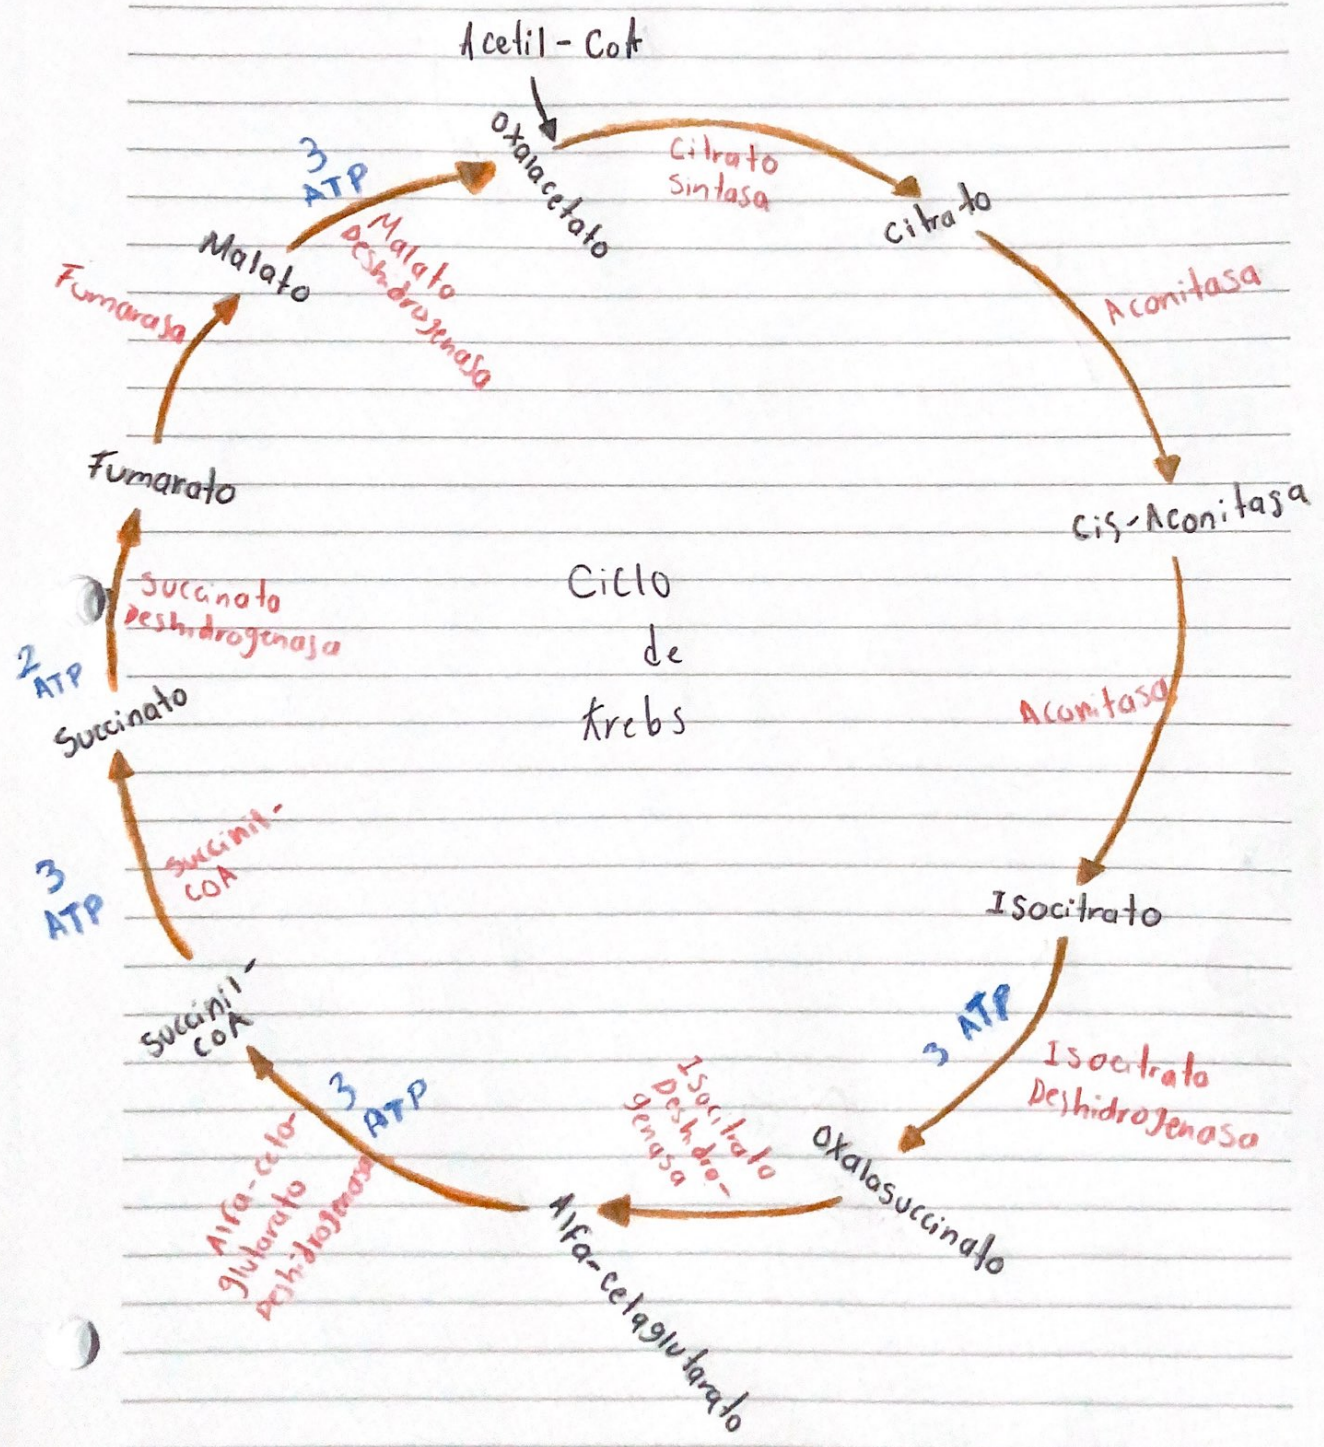 Acetil - CoA
Oxalacetato
Citrato
Sintasa
Citrato
Aconitasa
Cis-Aconitasa
Aconitasa
Isocitrato
3 ATP
Isocitrato
Deshidrogenasa
Oxalosuccinato
Isocitrato
Deshidro-
genasa
Alfa-cetaglutarato
3
ATP
Alfa-ceto-
glutarato
Deshidrogenasa
Succinil-
COA
3
ATP
Succinil-
COA
Succinato
2
ATP
Succinato
Deshidrogenasa
Fumarato
Fumarasa
Malato
3
ATP
Malato
Deshidrogenasa
Ciclo
de
Krebs